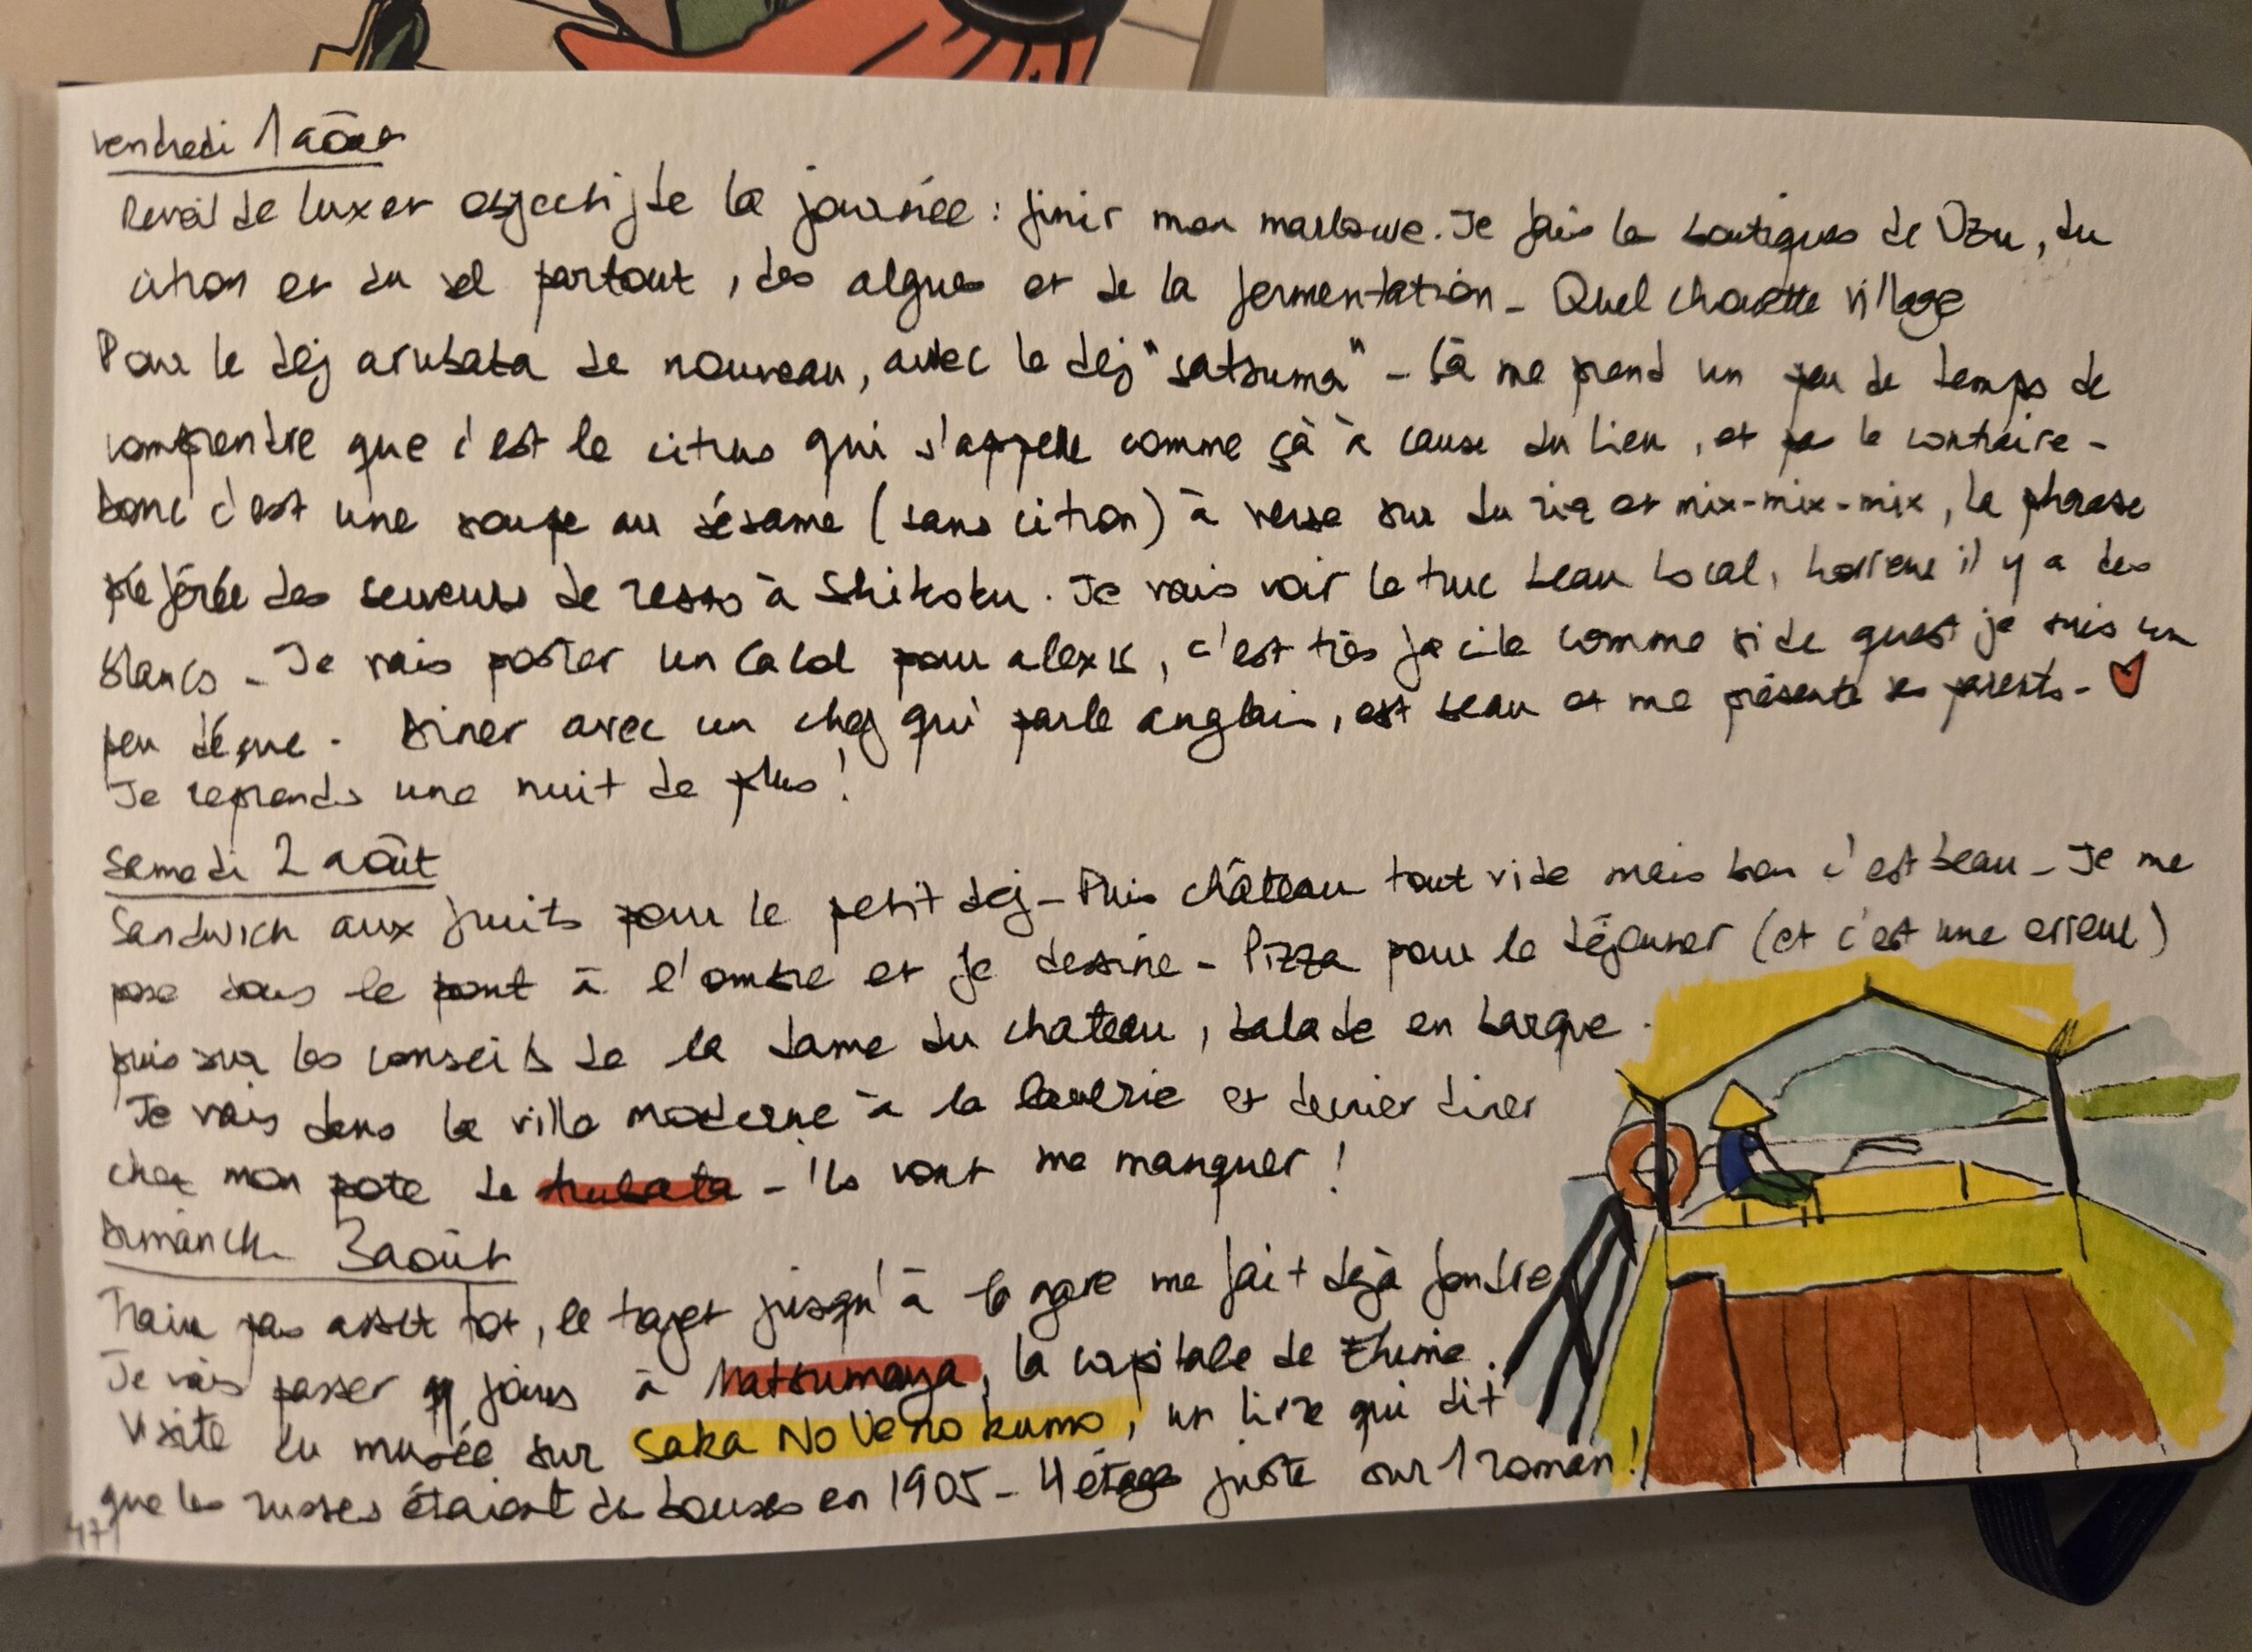 vendredi 1 août
Reveil de luxe et objectif de la journée : finir mon marlowe. Je fais les boutiques de Ozu, du
citron et du sel partout, des algues et de la fermentation - Quel chouette village
Pour le dej arubata de nouveau, avec le dej "satsuma" - Ça me prend un peu de temps de
comprendre que c'est le citrus qui s'appelle comme çà à cause du lieu, et pas le contraire -
Donc c'est une soupe au sésame (sans citron) à verser sur du riz et mix-mix-mix, la phrase
préférée des serveurs de resto à Shikoku. Je vais voir le truc beau local, horreur il y a des
blancs - Je vais poster un colol pour alexis, c'est très facile comme side quest je suis un
peu déçue. Diner avec un chef qui parle anglais, est beau et me présente ses parents -
Je reprends une nuit de plus !
Samedi 2 août
Sandwich aux fruits pour le petit dej - Puis château tout vide mais bon c'est beau - Je me
pose sous le pont à l'ombre et je dessine - Pizza pour le déjeuner (et c'est une erreur)
puis sur les conseils de la dame du chateau, balade en barque.
Je vais dans la ville moderne à la laverie et dernier diner
chez mon pote de arubata - ils vont me manquer !
Dimanche 3 août
Train pas assez tot, le trajet jusqu'à la gare me fait déjà fondre
Je vais passer jours à Matsumaya, la capitale de Ehime.
Visite du musée sur Saka No Ue no kumo, un livre qui dit
que les russes étaient des bouses en 1905 - 4 étages juste sur 1 roman !